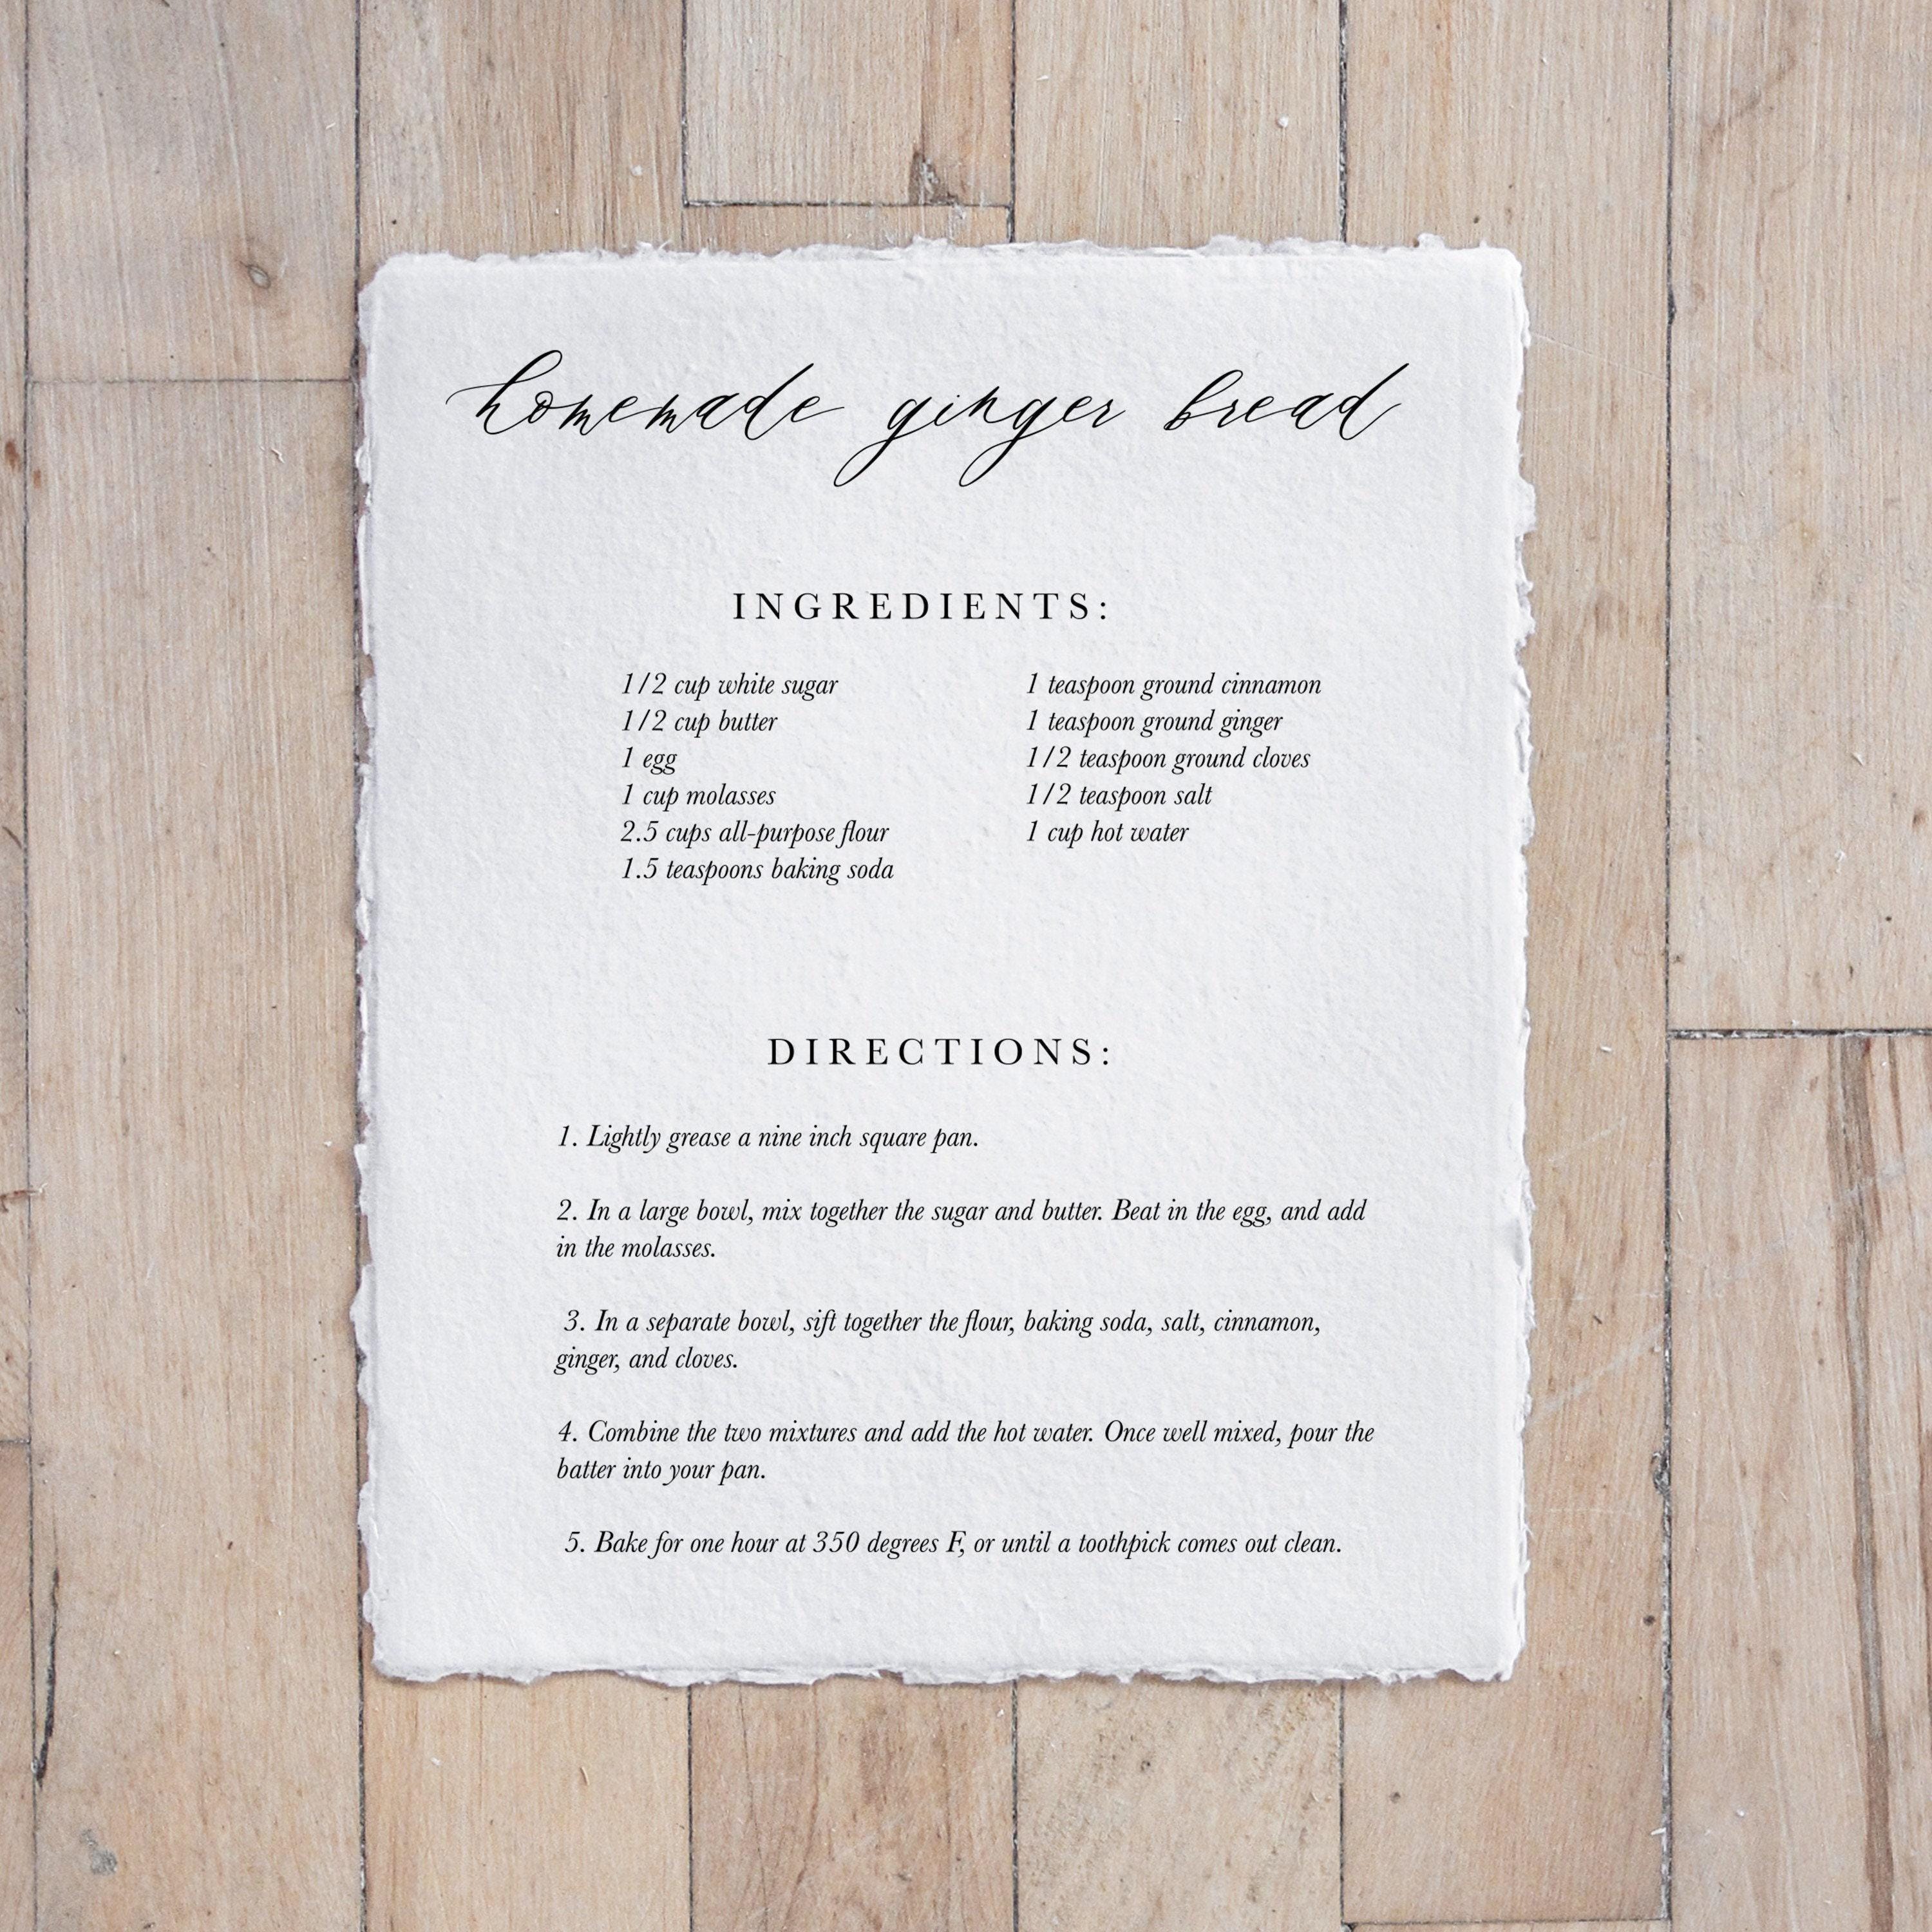 homemade ginger bread
INGREDIENTS:
1/2 cup white sugar
1/2 cup butter
1 egg
1 cup molasses
2.5 cups all-purpose flour
1.5 teaspoons baking soda
1 teaspoon ground cinnamon
1 teaspoon ground ginger
1/2 teaspoon ground cloves
1/2 teaspoon salt
1 cup hot water
DIRECTIONS:
1. Lightly grease a nine inch square pan.
2. In a large bowl, mix together the sugar and butter. Beat in the egg, and add
in the molasses.
3. In a separate bowl, sift together the flour, baking soda, salt, cinnamon,
ginger, and cloves.
4. Combine the two mixtures and add the hot water. Once well mixed, pour the
batter into your pan.
5. Bake for one hour at 350 degrees F, or until a toothpick comes out clean.